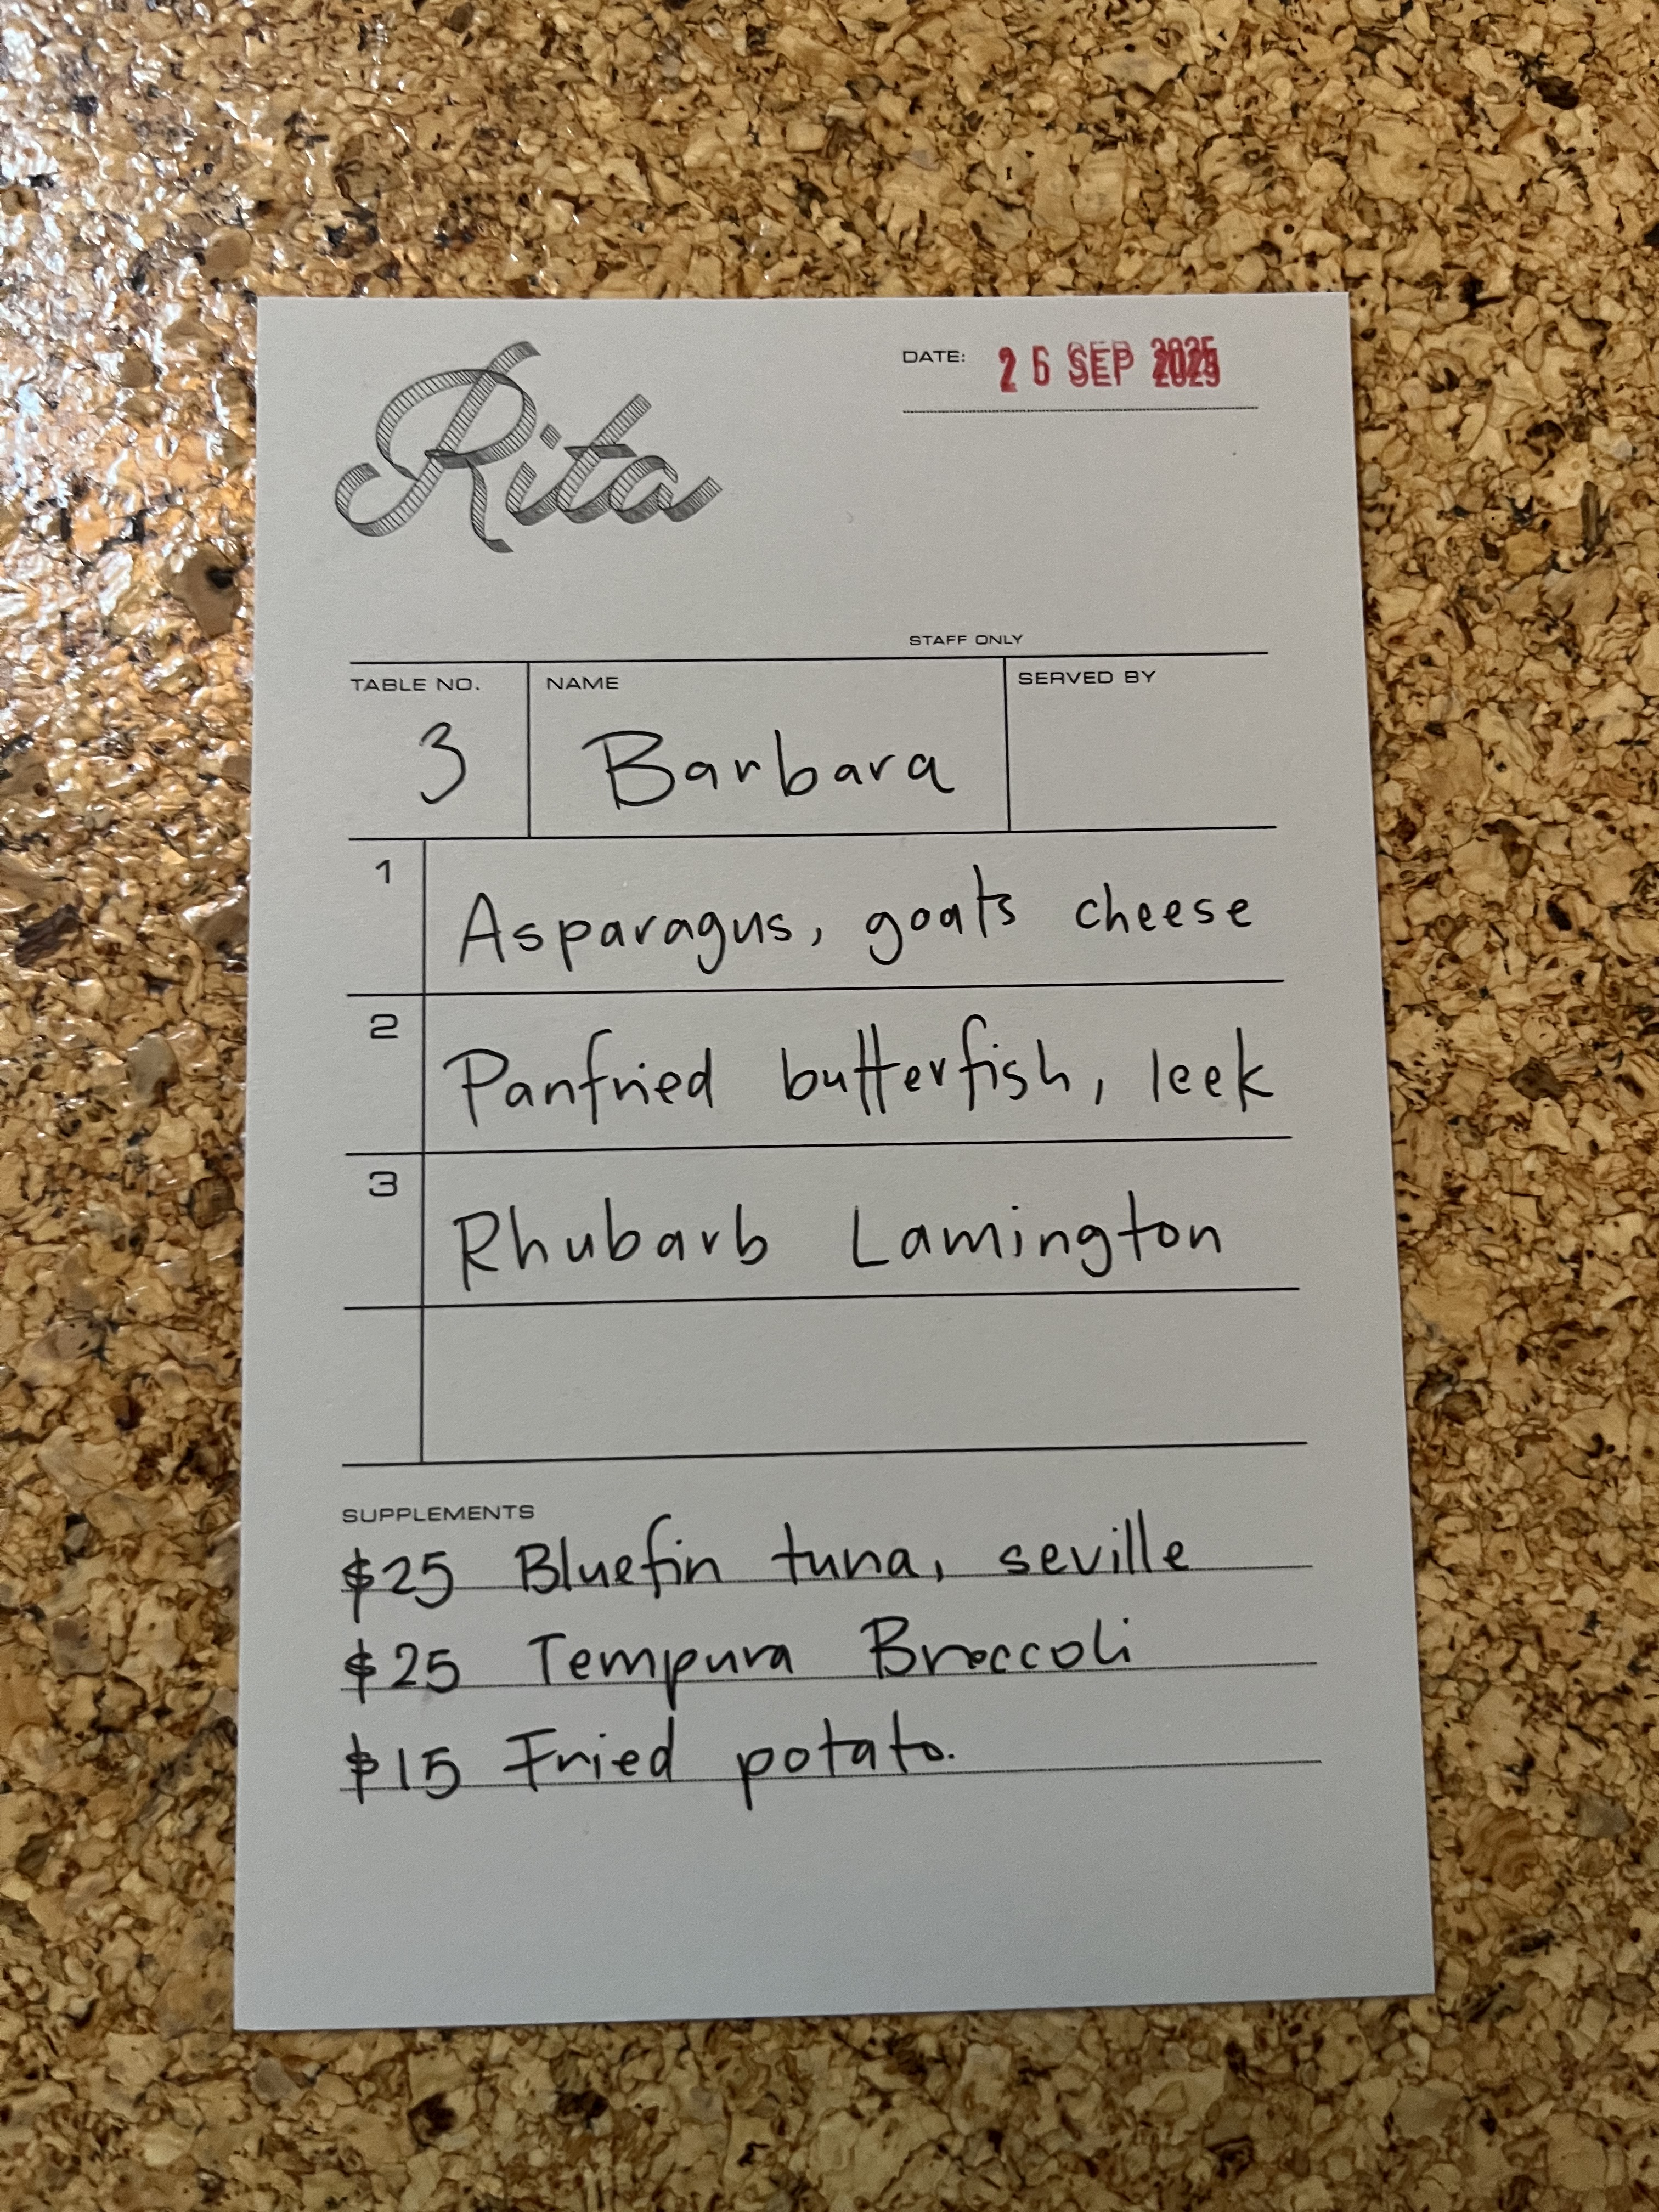 Rita
DATE: 26 SEP 2025
STAFF ONLY
TABLE NO. NAME SERVED BY
3 Barbara
1 Asparagus, goats cheese
2 Panfried butterfish, leek
3 Rhubarb Lamington
SUPPLEMENTS
$25 Bluefin tuna, seville
$25 Tempura Broccoli
$15 Fried potato.